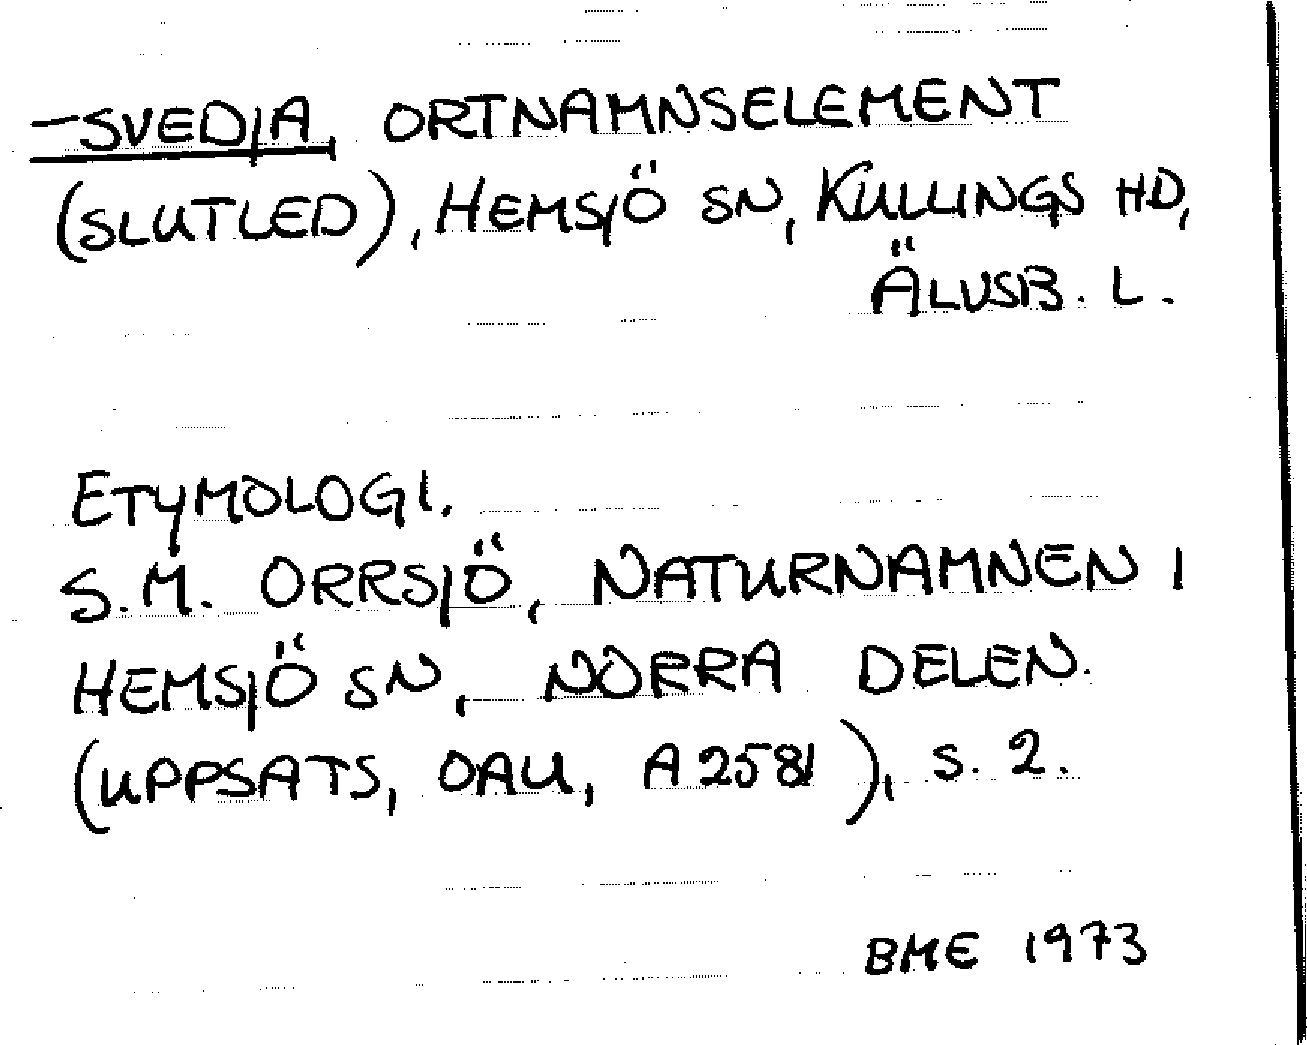 -SVEDJA, ORTNAMNSELEMENT
(SLUTLED), HEMSJÖ SN, KULLINGS HD,
ÄLVSB. L.
ETYMOLOGI.
S.M. ORRSJÖ, NATURNAMNEN I
HEMSJÖ SN, NORRA DELEN.
(UPPSATS, OAU, A 2581), S. 2.
BME 1973